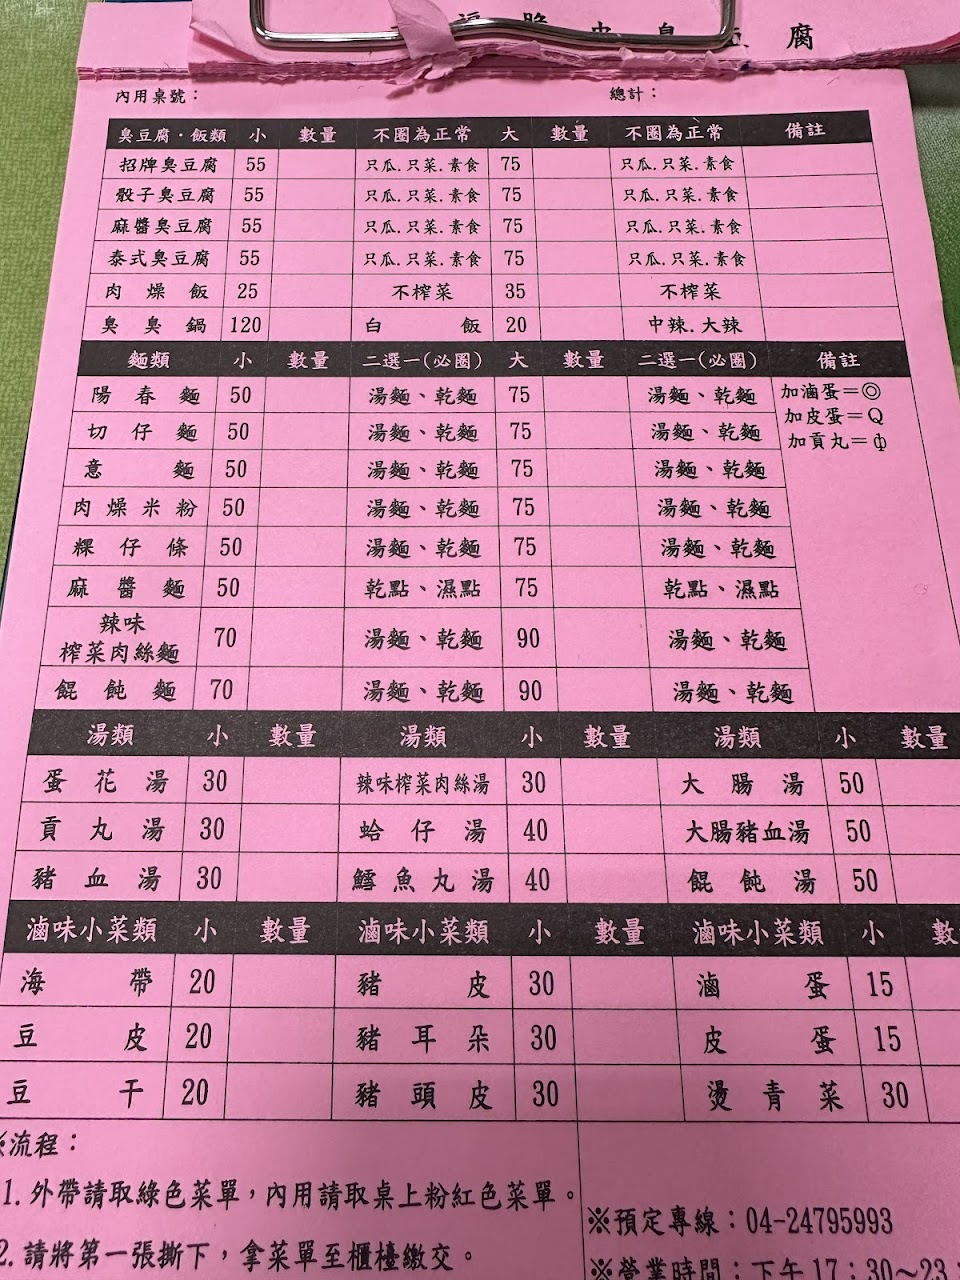 福脆皮臭豆腐
內用桌號： 總計：
臭豆腐·飯類 小 數量 不圈為正常 大 數量 不圈為正常 備註
招牌臭豆腐 55 只瓜.只菜.素食 75 只瓜.只菜.素食
骰子臭豆腐 55 只瓜.只菜.素食 75 只瓜.只菜.素食
麻醬臭豆腐 55 只瓜.只菜.素食 75 只瓜.只菜.素食
泰式臭豆腐 55 只瓜.只菜.素食 75 只瓜.只菜.素食
肉燥飯 25 不榨菜 35 不榨菜
臭臭鍋 120 白飯 20 中辣.大辣
麵類 小 數量 二選一(必圈) 大 數量 二選一(必圈) 備註
陽春麵 50 湯麵、乾麵 75 湯麵、乾麵 加滷蛋＝◎
切仔麵 50 湯麵、乾麵 75 湯麵、乾麵 加皮蛋＝Q
意麵 50 湯麵、乾麵 75 湯麵、乾麵 加貢丸＝ф
肉燥米粉 50 湯麵、乾麵 75 湯麵、乾麵
粿仔條 50 湯麵、乾麵 75 湯麵、乾麵
麻醬麵 50 乾點、濕點 75 乾點、濕點
辣味
榨菜肉絲麵 70 湯麵、乾麵 90 湯麵、乾麵
餛飩麵 70 湯麵、乾麵 90 湯麵、乾麵
湯類 小 數量 湯類 小 數量 湯類 小 數量
蛋花湯 30 辣味榨菜肉絲湯 30 大腸湯 50
貢丸湯 30 蛤仔湯 40 大腸豬血湯 50
豬血湯 30 鱈魚丸湯 40 餛飩湯 50
滷味小菜類 小 數量 滷味小菜類 小 數量 滷味小菜類 小 數
海帶 20 豬皮 30 滷蛋 15
豆皮 20 豬耳朵 30 皮蛋 15
豆干 20 豬頭皮 30 燙青菜 30
※流程：
1.外帶請取綠色菜單，內用請取桌上粉紅色菜單。
2.請將第一張撕下，拿菜單至櫃檯繳交。
※預定專線：04-24795993
※營業時間：下午17：30～23：